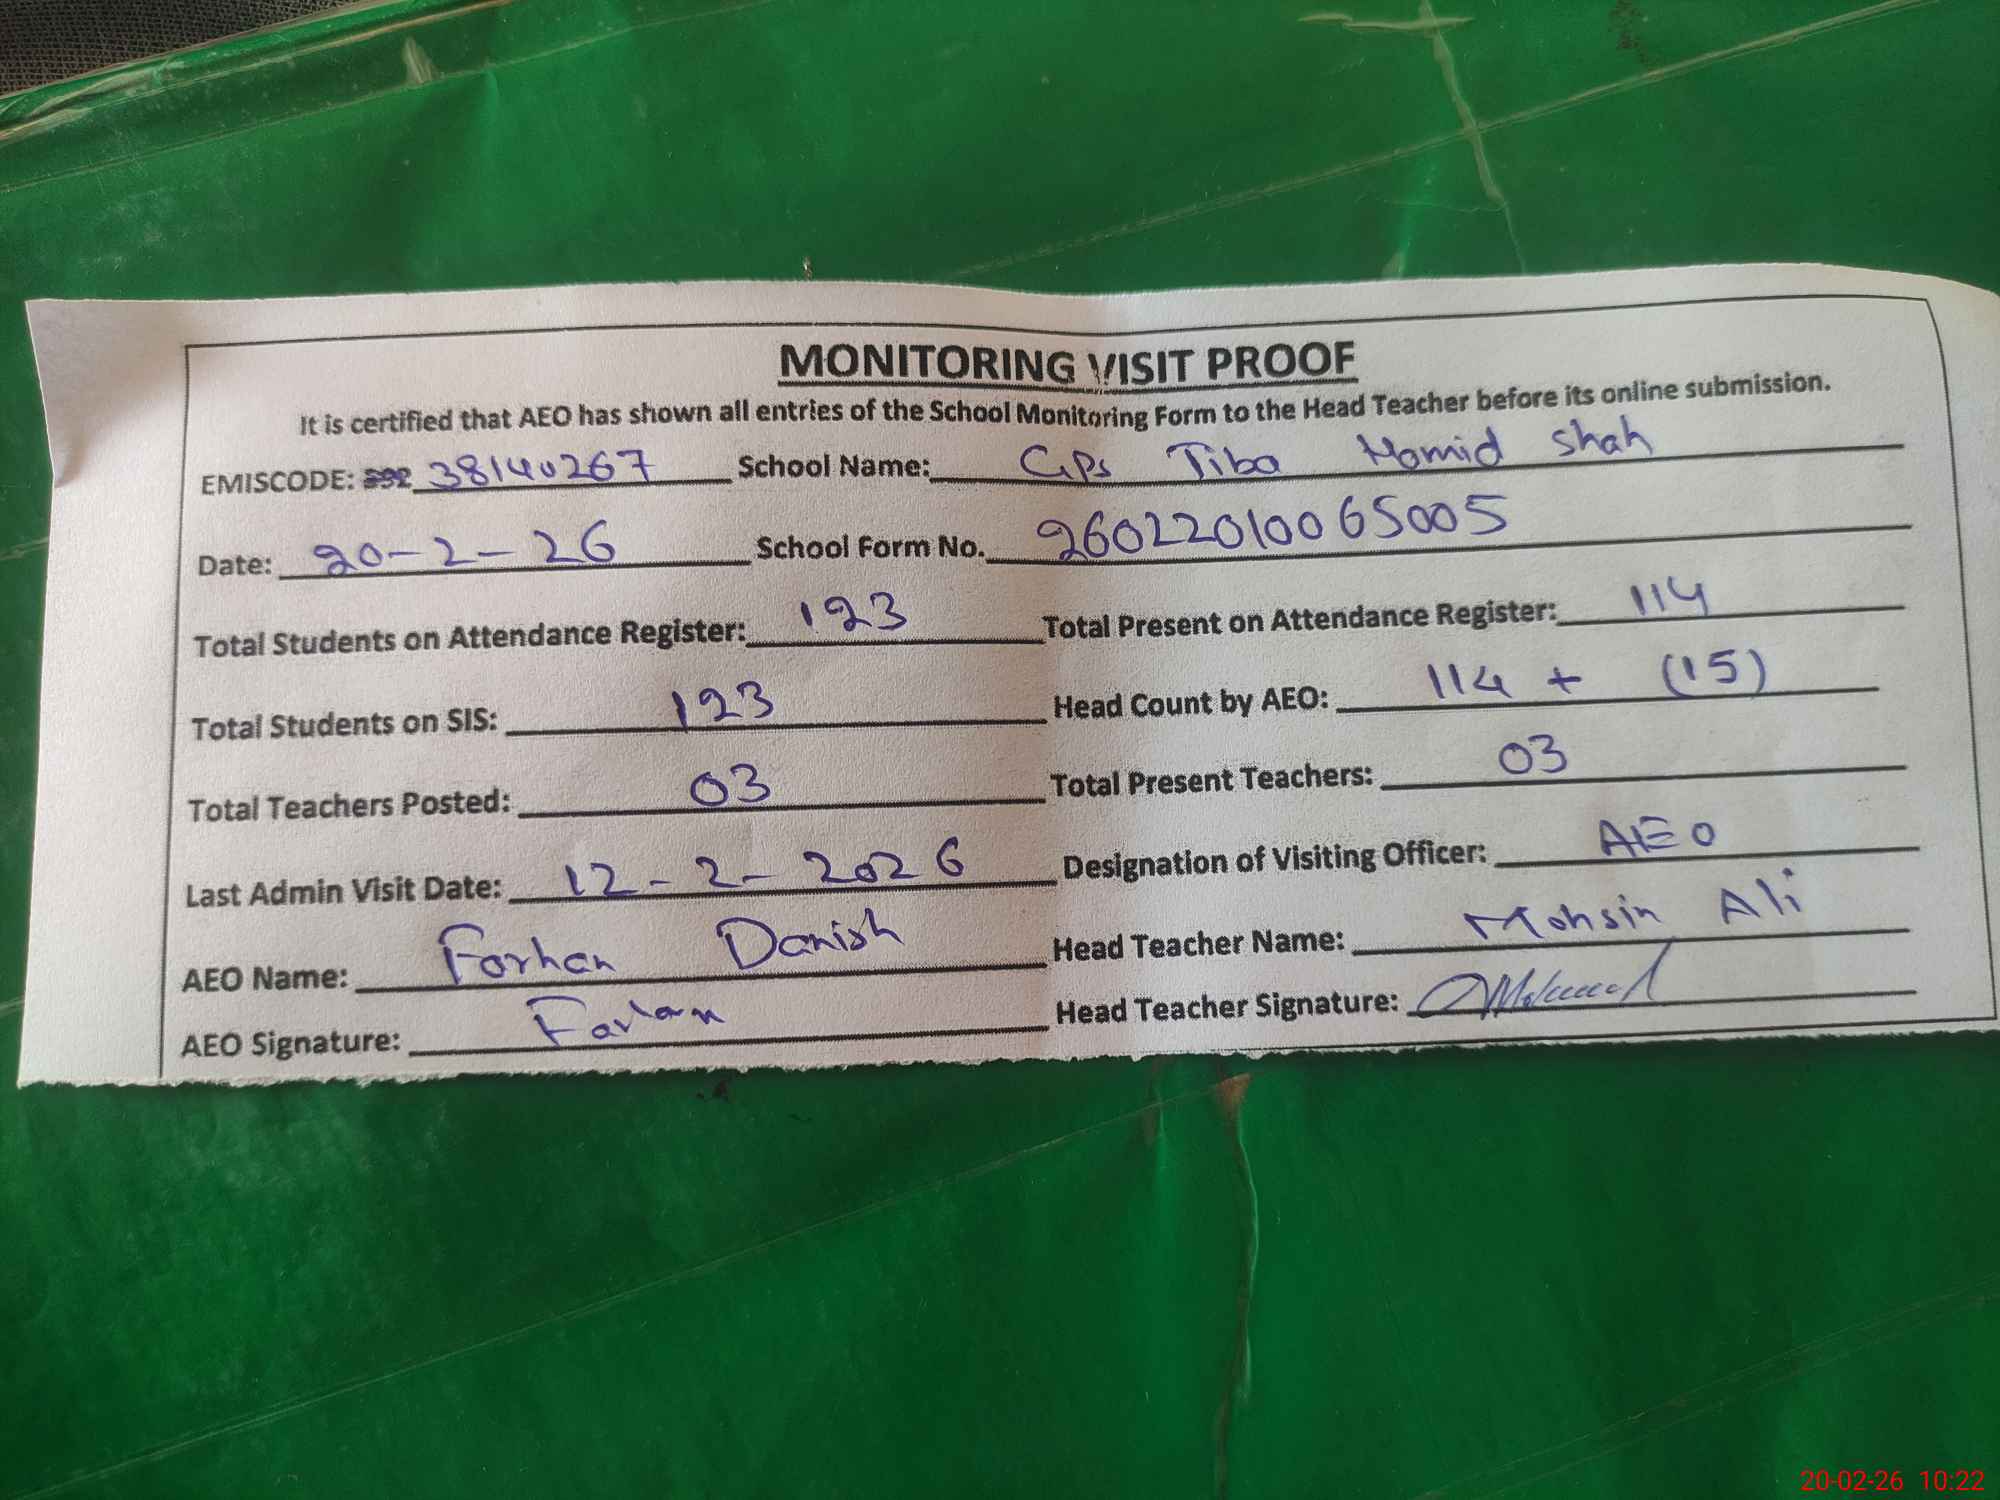 MONITORING VISIT PROOF
It is certified that AEO has shown all entries of the School Monitoring Form to the Head Teacher before its online submission.
EMISCODE: 38140267 School Name: GPS Tiba Hamid Shah
Date: 20-2-26 School Form No. 26022010065005
Total Students on Attendance Register: 123 Total Present on Attendance Register: 114
Total Students on SIS: 123 Head Count by AEO: 114 + (15)
Total Teachers Posted: 03 Total Present Teachers: 03
Last Admin Visit Date: 12-2-2026 Designation of Visiting Officer: AEO
AEO Name: Farhan Danish Head Teacher Name: Mohsin Ali
AEO Signature: Farhan Head Teacher Signature:
20-02-26 10:22